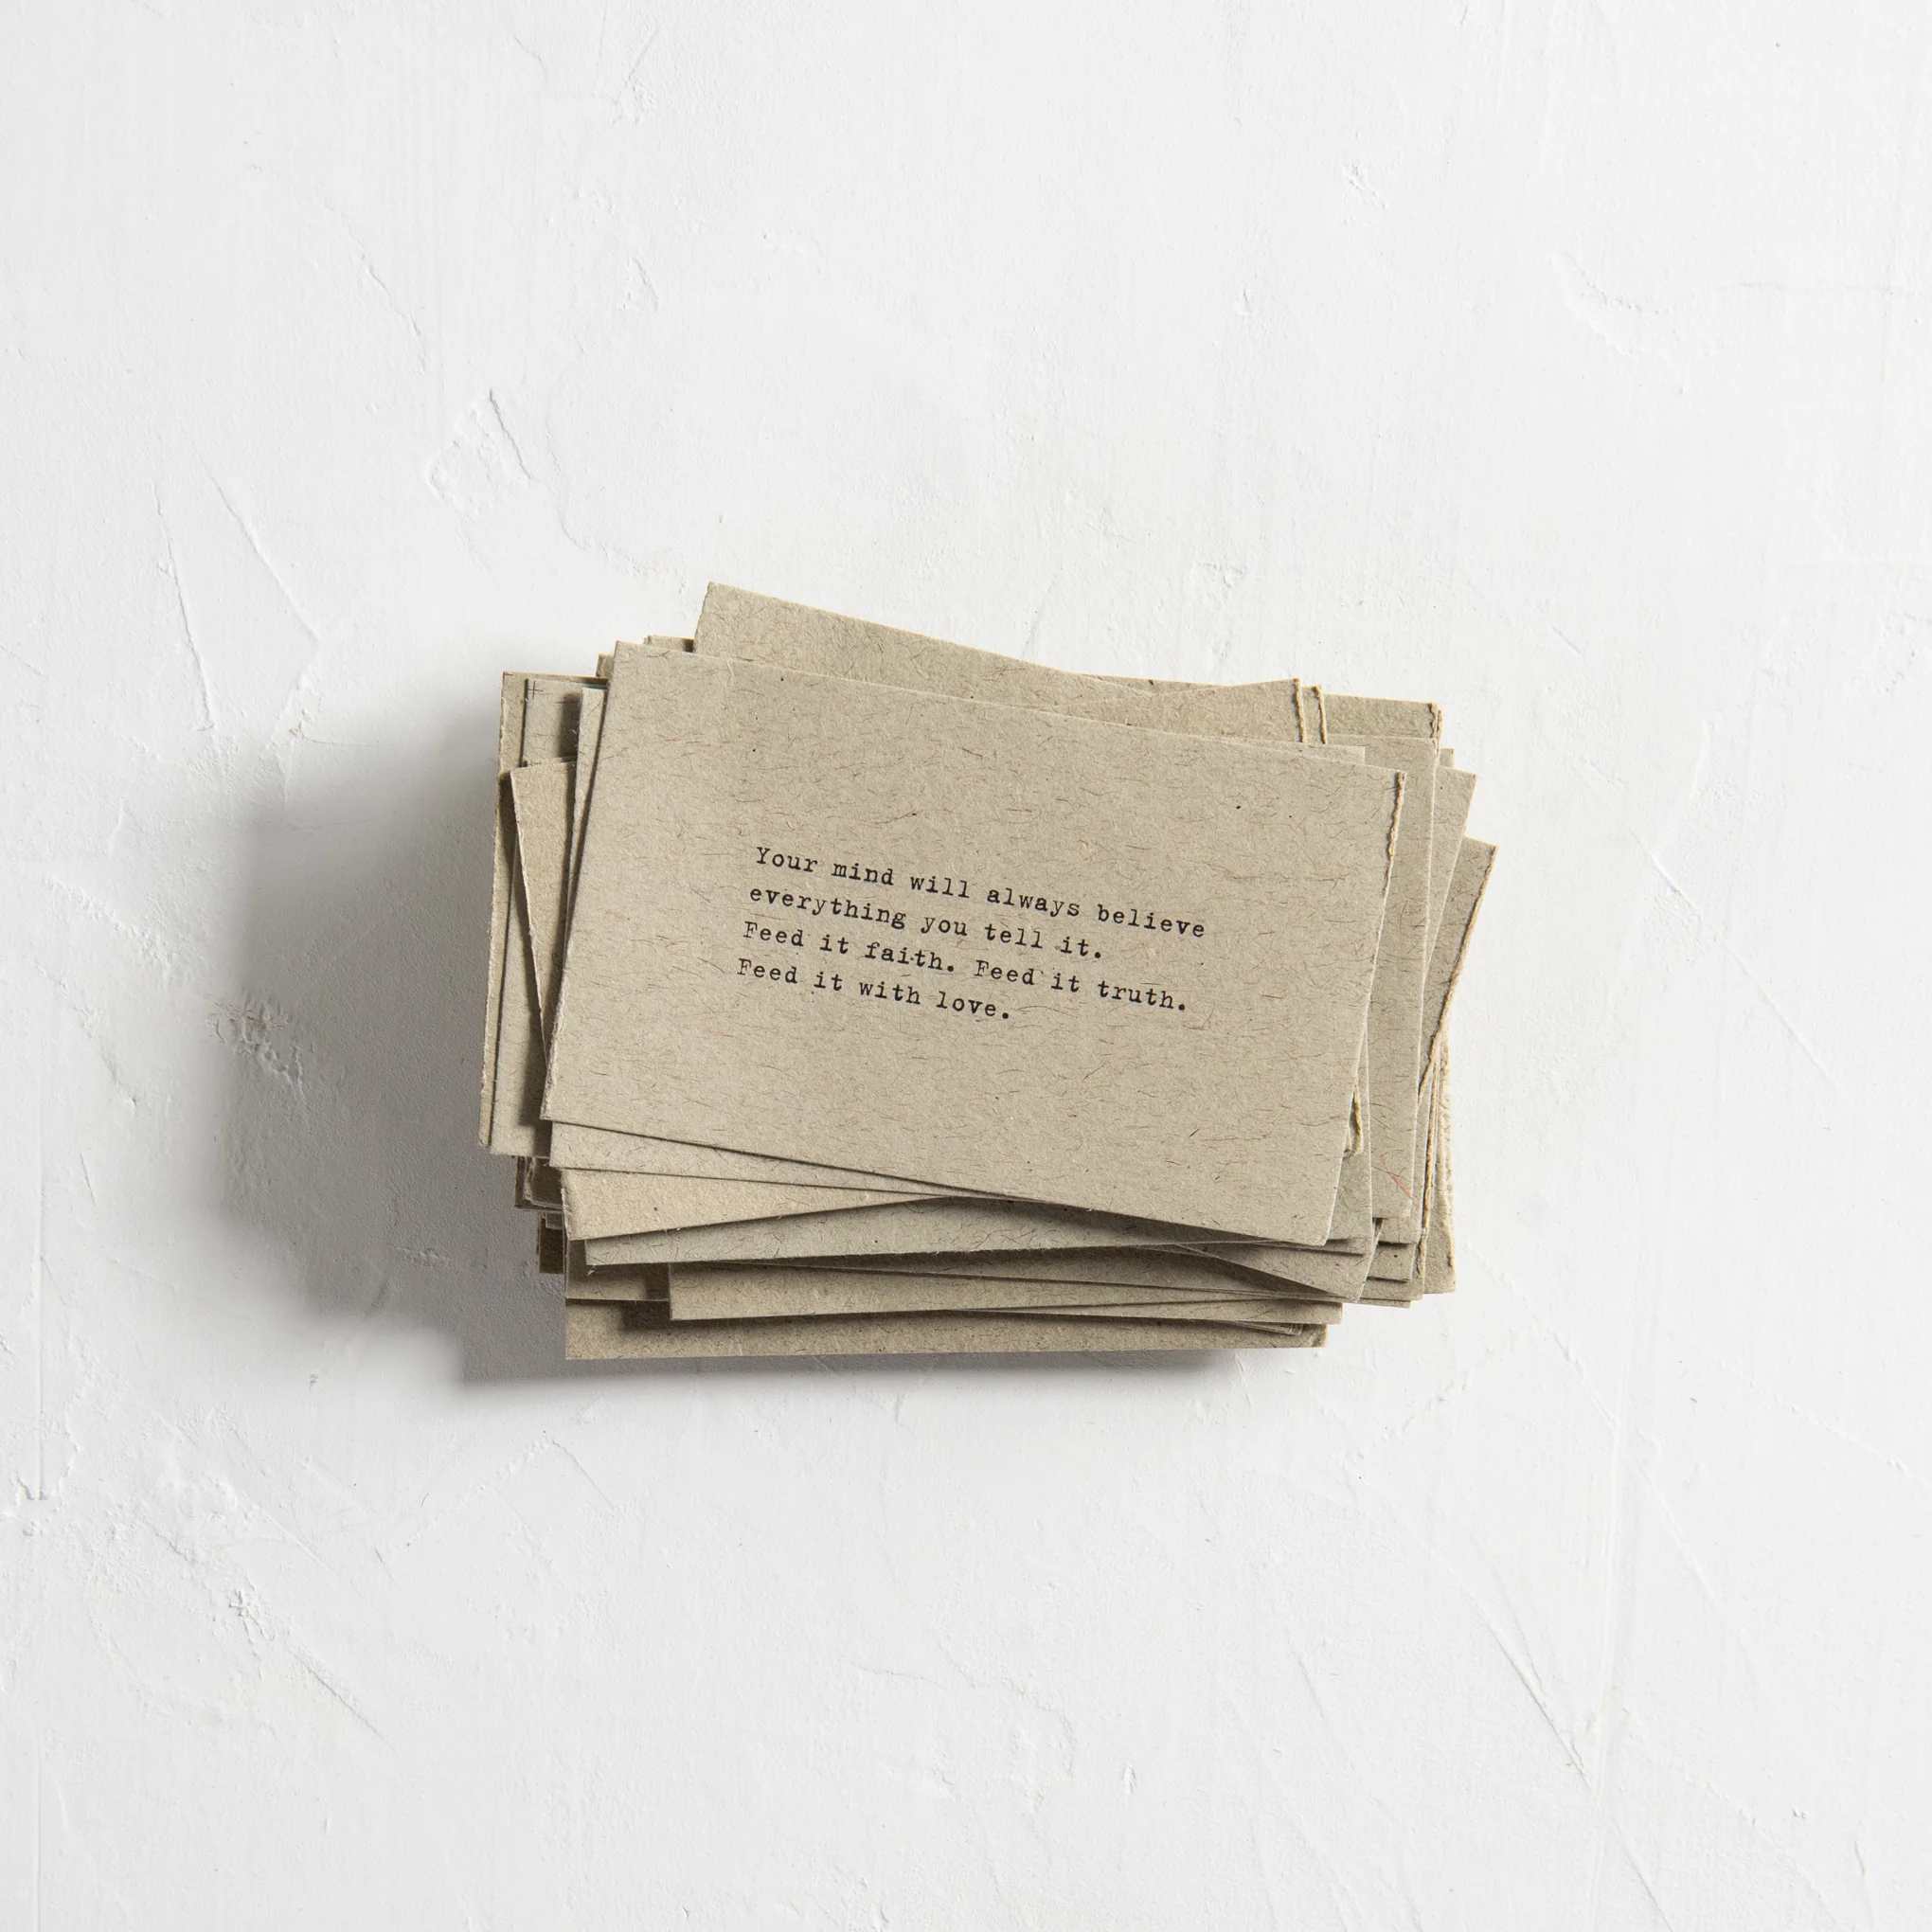 Your mind will always believe
everything you tell it.
Feed it faith. Feed it truth.
Feed it with love.